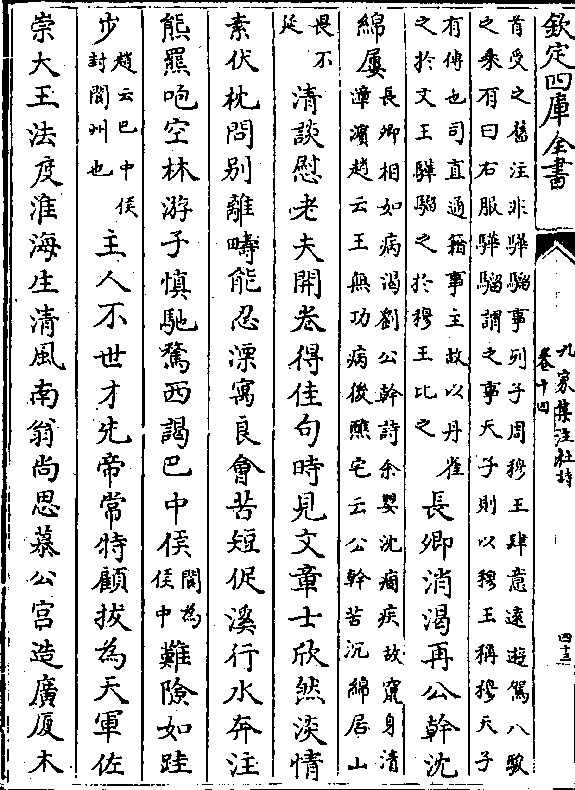 欽定四庫全書
九家集注杜詩
卷十四
四十三
首受之舊注非驊騮事列子周穆王肆意遠遊駕八駿
之乘有曰右服驊騮謂之事天子則以穆王稱穆天子
有傳也司直通籍事主故以丹雀
之於文王驊騮之於穆王比之
長卿消渴再公幹沈
綿屢
長卿相如病渴劉公幹詩余嬰沈痼疾故竄身清
漳濱趙云王無功病後醮宅云公幹苦沉綿居山
畏不
延
清談慰老夫開卷得佳句時見文章士欣然淡情
素伏枕問别離疇能忍漂寓良會苦短促溪行水奔注
熊羆咆空林游子慎馳騖西謁巴中侯
閬為
侯中
難險如跬
步
趙云巴中侯
封閬州也
主人不世才先帝常特顧拔為天軍佐
崇大王法度淮海生清風南翁尚思慕公宫造廣厦木